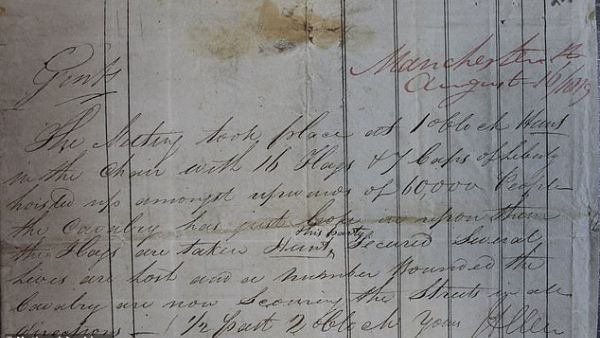 Manchester
August 16 1819
Gents
The Meeting took place at 1 oClock Hunt
in the Chair with 16 Flags & 7 Caps of Liberty
hoisted up amongst upwards of 60,000 People
the Cavalry has just in upon them
the Flags are taken Hunt, this party Secured Several
Lives are Lost and a number Wounded the
Cavalry are now Scouring the Streets in all
directions - 1/2 past 2 oClock Yours